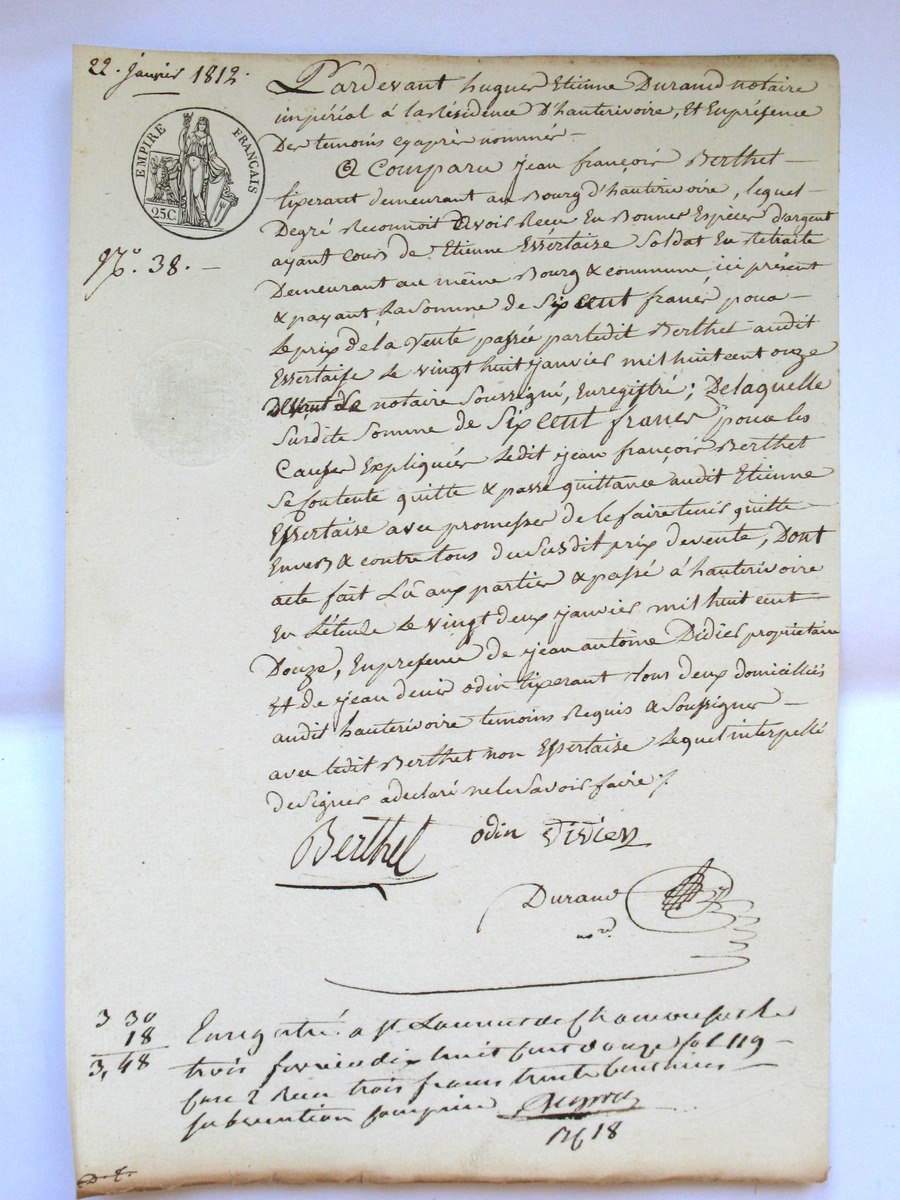 22. janvier 1812.
EMPIRE FRANÇAIS
25C
N.° 38. —
Pardevant hugues Etienne Durand notaire
impérial à la résidence d'hauterivoire, Et En présence
Des temoins cy après nommés —
A Comparu jean françois Berthet —
tixerant demeurant au Bourg d'hauterivoire, lequel —
De gré Reconnoit avoir Recu En Bonnes Especes d'argent
ayant cours de Etienne Essertaise Soldat En Retraite
Demeurant au même Bourg & commune ici présent
& payant, la Somme de Six cent francs pour —
le prix de la Vente passée par ledit Berthet audit
Essertaise le vingt huit janvier mil huit cent onze
devant le notaire Soussigné, Enregistré; De laquelle
Susdite Somme de Six cent francs pour les
Causes Expliquées ledit jean françois Berthet
Se Contente quitte & passe quittance audit Etienne
Essertaise avec promesses de le faire tenir quitte
Envers & contre tous du Susdit prix de vente, Dont
acte fait Lû aux parties & passé à hauterivoire
En l'étude le vingt deux janvier mil huit cent —
Douze, En présence de jean antoine Didier propriétaire
Et de jean denis odin tixerant tous deux domicilliés
audit hauterivoire temoins Requis & Soussignes —
avec ledit Berthet non Essertaise lequel interpellé
de Signer a déclaré ne le Savoir faire ./.
Berthet odin
Durand
no.re
3 30
18
3,48
Enregistré a St Laurent de Chamousset le
trois fevrier dix huit cent douze fol 119 —
case 2 Recu trois francs trente centimes —
subvention comprise